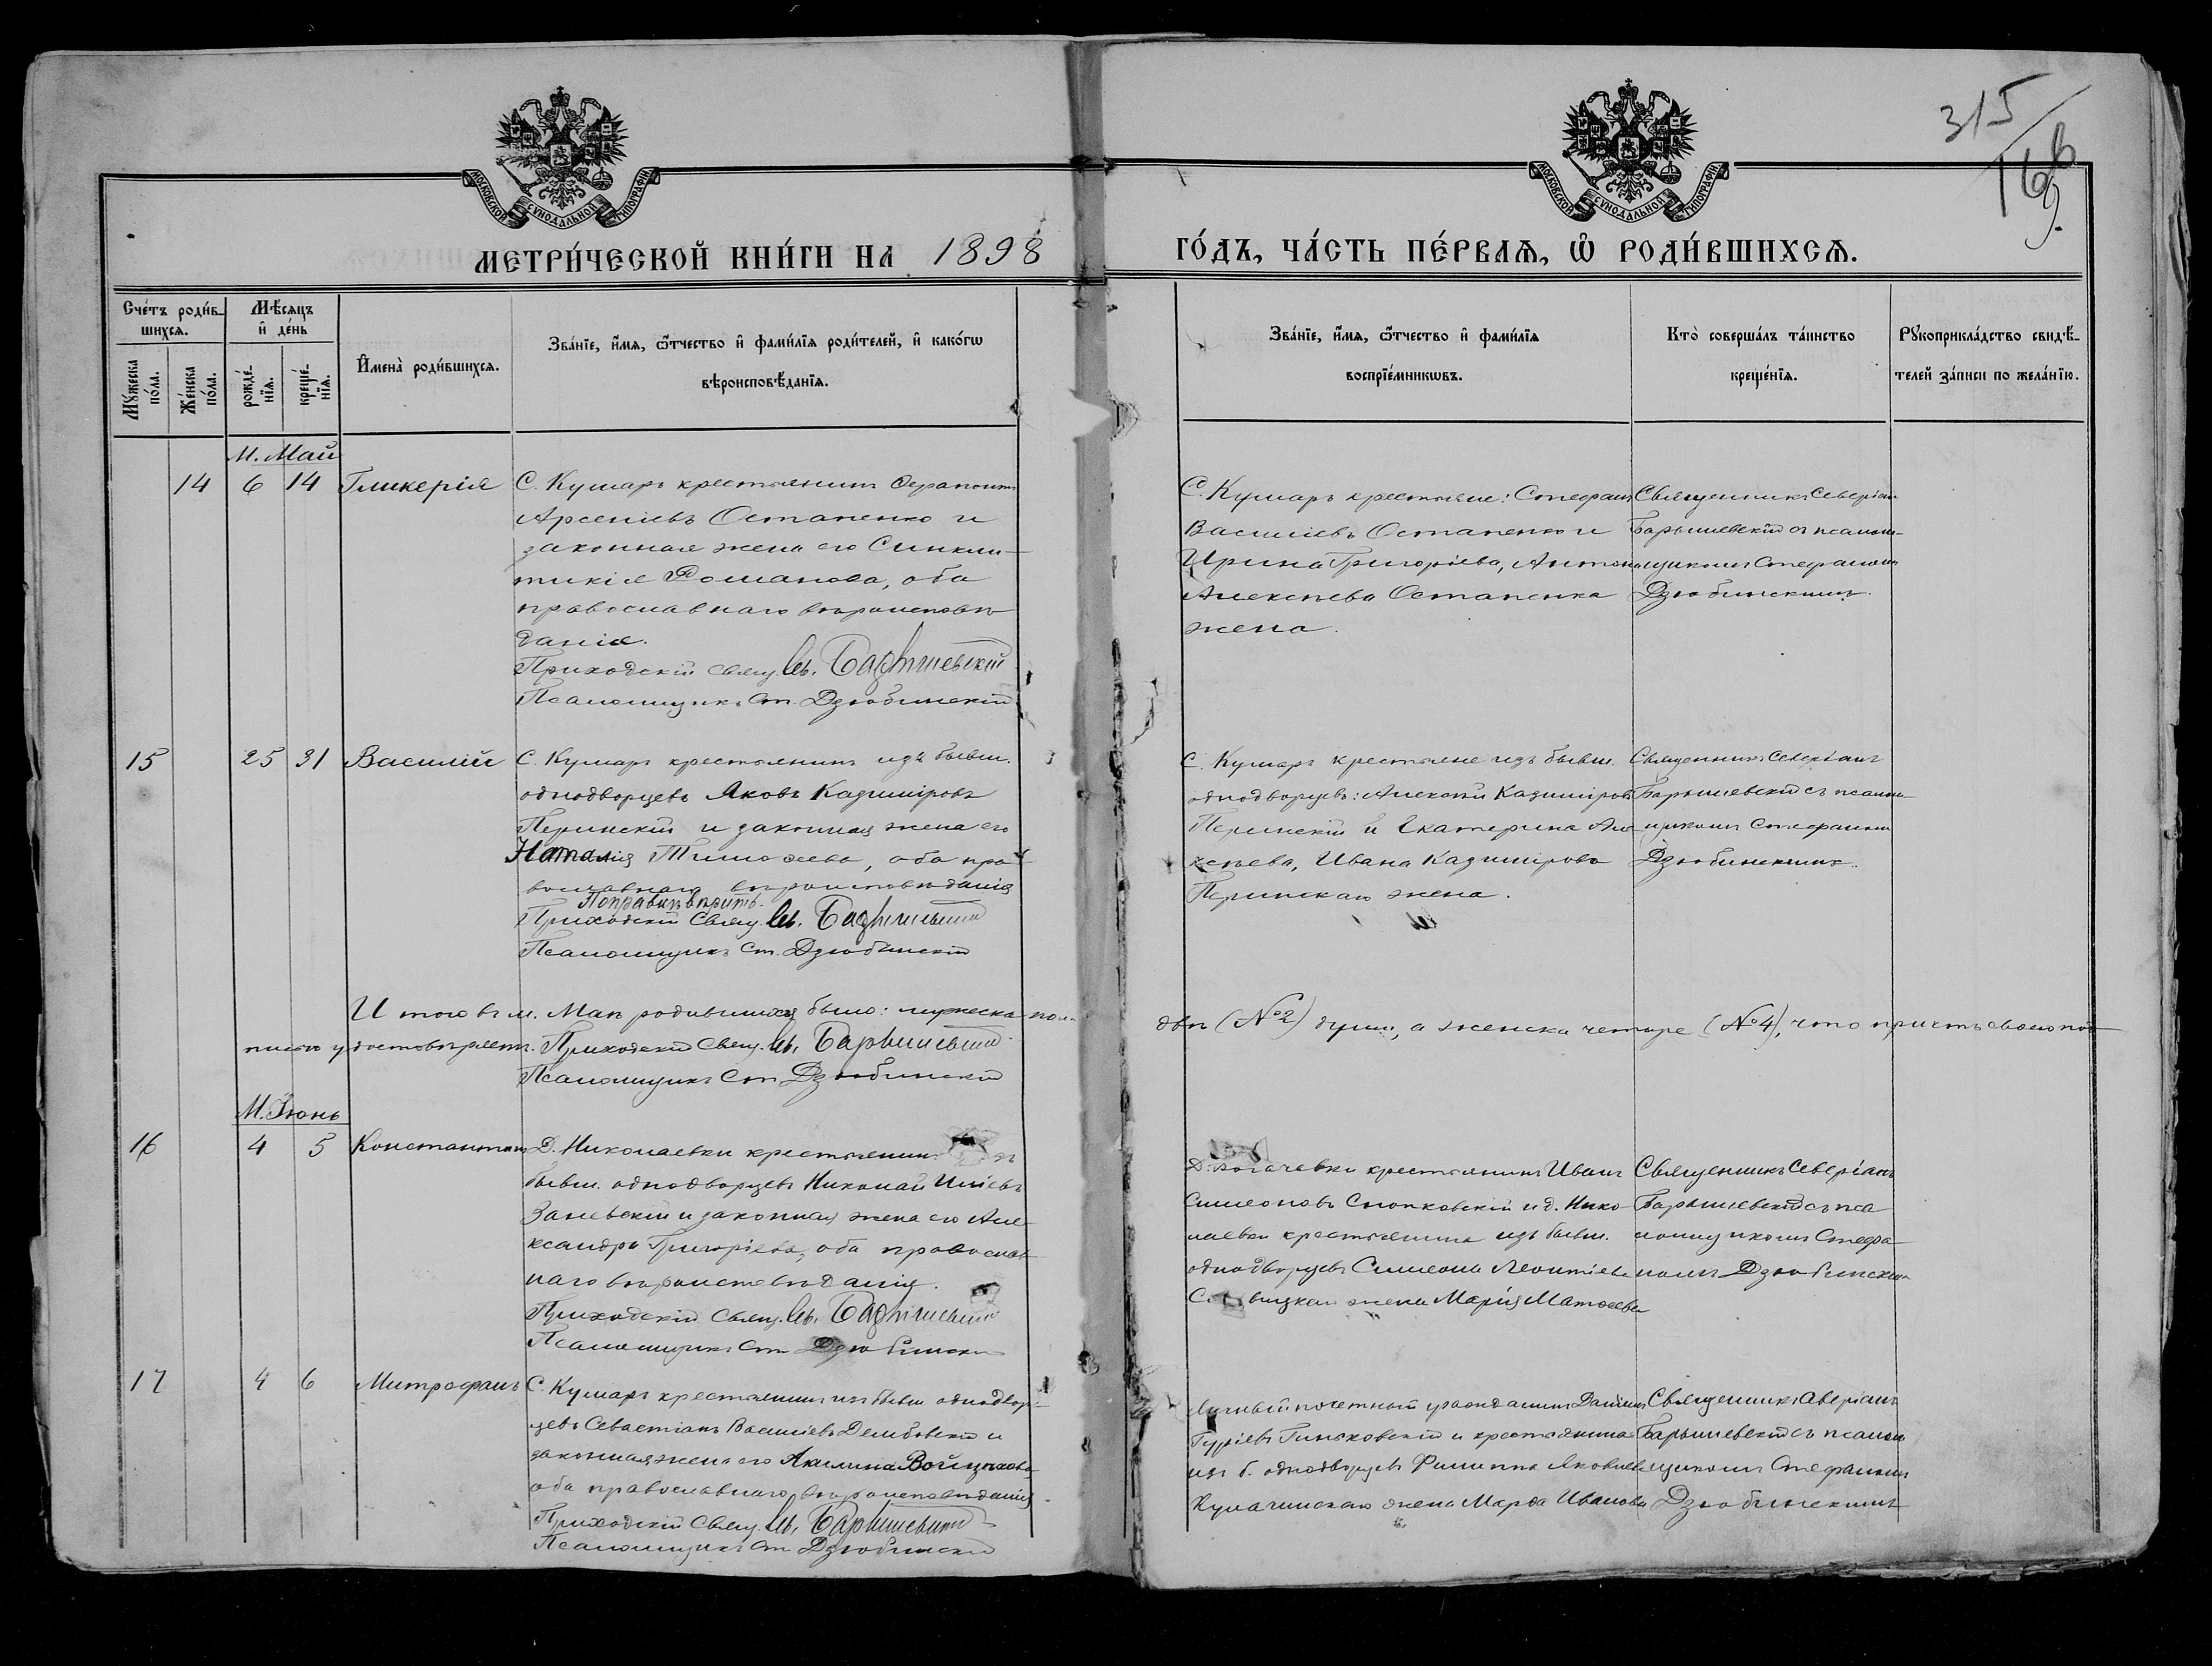 315
166
9.
МОСКОВСКОЙ СУНОДАЛЬНОЙ ТИПОГРАФІИ
МОСКОВСКОЙ СУНОДАЛЬНОЙ ТИПОГРАФІИ
МЕТРИ́ЧЕСКОЙ КНИ́ГИ НА 1898
ГО́ДЪ, ЧА́СТЬ ПЕ́РВАЯ, Ѡ РОДИ́ВШИХСЯ.
Сче́тъ роди́в-
шихся.
Му́жеска по́ла.
Же́нска по́ла.
Мѣ́сяцъ и де́нь
рожде́-нія.
креще́-нія.
Имена̀ роди́вшихся.
Зва́ніе, и́мя, ѻ́тчество и фами́лія роди́телей, и како́гѡ
вѣроисповѣ́данія.
Зва́ніе, и́мя, ѻ́тчество и фами́лія
воспріе́мникѡвъ.
Кто̀ соверша́лъ та́инство
креще́нія.
Рукоприкла́дство свидѣ́-
телей за́писи по жела́нію.
М. Май
14 6 14 Гликерія
С. Кумаръ крестьянинъ Ферапонтъ
Арсеніевъ Остапенко и
законная жена его Синкли-
тикія Романова, оба
православнаго вѣроисповѣ-
данія.
Приходскій Свящ. Св. Барышевскій
Псаломщикъ Ст. Дзюбинскій
С. Кумаръ крестьяне: Стефанъ
Василіевъ Остапенко и
Ирина Григоріева, Антона
Алексѣева Остапенка
жена.
Священникъ Северіанъ
Барышевскій съ псалом-
щикомъ Стефаномъ
Дзюбинскимъ.
15 25 31 Василій
С. Кумаръ крестьянинъ изъ бывш.
однодворцевъ Яковъ Казиміровъ
Перинскій и законная жена его
Наталія Тимоѳеева, оба пра-
вославнаго вѣроисповѣданія
Приходскій Свящ. Св. Барышевскій
Псаломщикъ Ст. Дзюбинскій
С. Кумаръ крестьяне изъ бывш.
однодворцевъ: Алексѣй Казиміровъ
Перинскій и Екатерина Але-
ксѣева, Ивана Казимірова
Перинскаго жена.
Священникъ Северіанъ
Барышевскій съ псалом-
щикомъ Стефаномъ
Дзюбинскимъ.
Итого въ м. Маѣ родившихся было: мужеска пола
двѣ (№2) души, а женска четыре (№4), что причтъ своею под-
писью удостовѣряетъ. Приходскій Свящ. Св. Барышевскій
Псаломщикъ Ст. Дзюбинскій
М. Іюнь
16 4 5 Константинъ
Д. Николаевки крестьянинъ изъ
бывш. однодворцевъ Николай Иліевъ
Заневскій и законная жена его Але-
ксандра Григоріева, оба православ-
наго вѣроисповѣданія.
Приходскій Свящ. Св. Барышевскій
Псаломщикъ Ст. Дзюбинскій
крестьянинъ Иванъ
Симеоновъ Снопковскій и д. Нико-
лаевки крестьянина изъ бывш.
однодворцевъ Симеона Леонтіева
жена Марія Матѳеева
Священникъ Северіанъ
Барышевскій съ пса-
ломщикомъ Стефа-
номъ Дзюбинскимъ
17 4 6 Митрофанъ
С. Кумаръ крестьянинъ изъ бывш. однодвор-
цевъ Севастіанъ Василіевъ Дембовскій и
законная жена его Акилина Войцѣхова
оба православнаго вѣроисповѣданія
Приходскій Свящ. Св. Барышевскій
Псаломщикъ Ст. Дзюбинскій
Личный почетный гражданинъ Даніилъ
Гуріевъ Гиньковскій и крестьянина
изъ б. однодворцевъ Филиппа Яковлева
Кулачинскаго жена Марѳа Иванова
Священникъ Северіанъ
Барышевскій съ псалом-
щикомъ Стефаномъ
Дзюбинскимъ